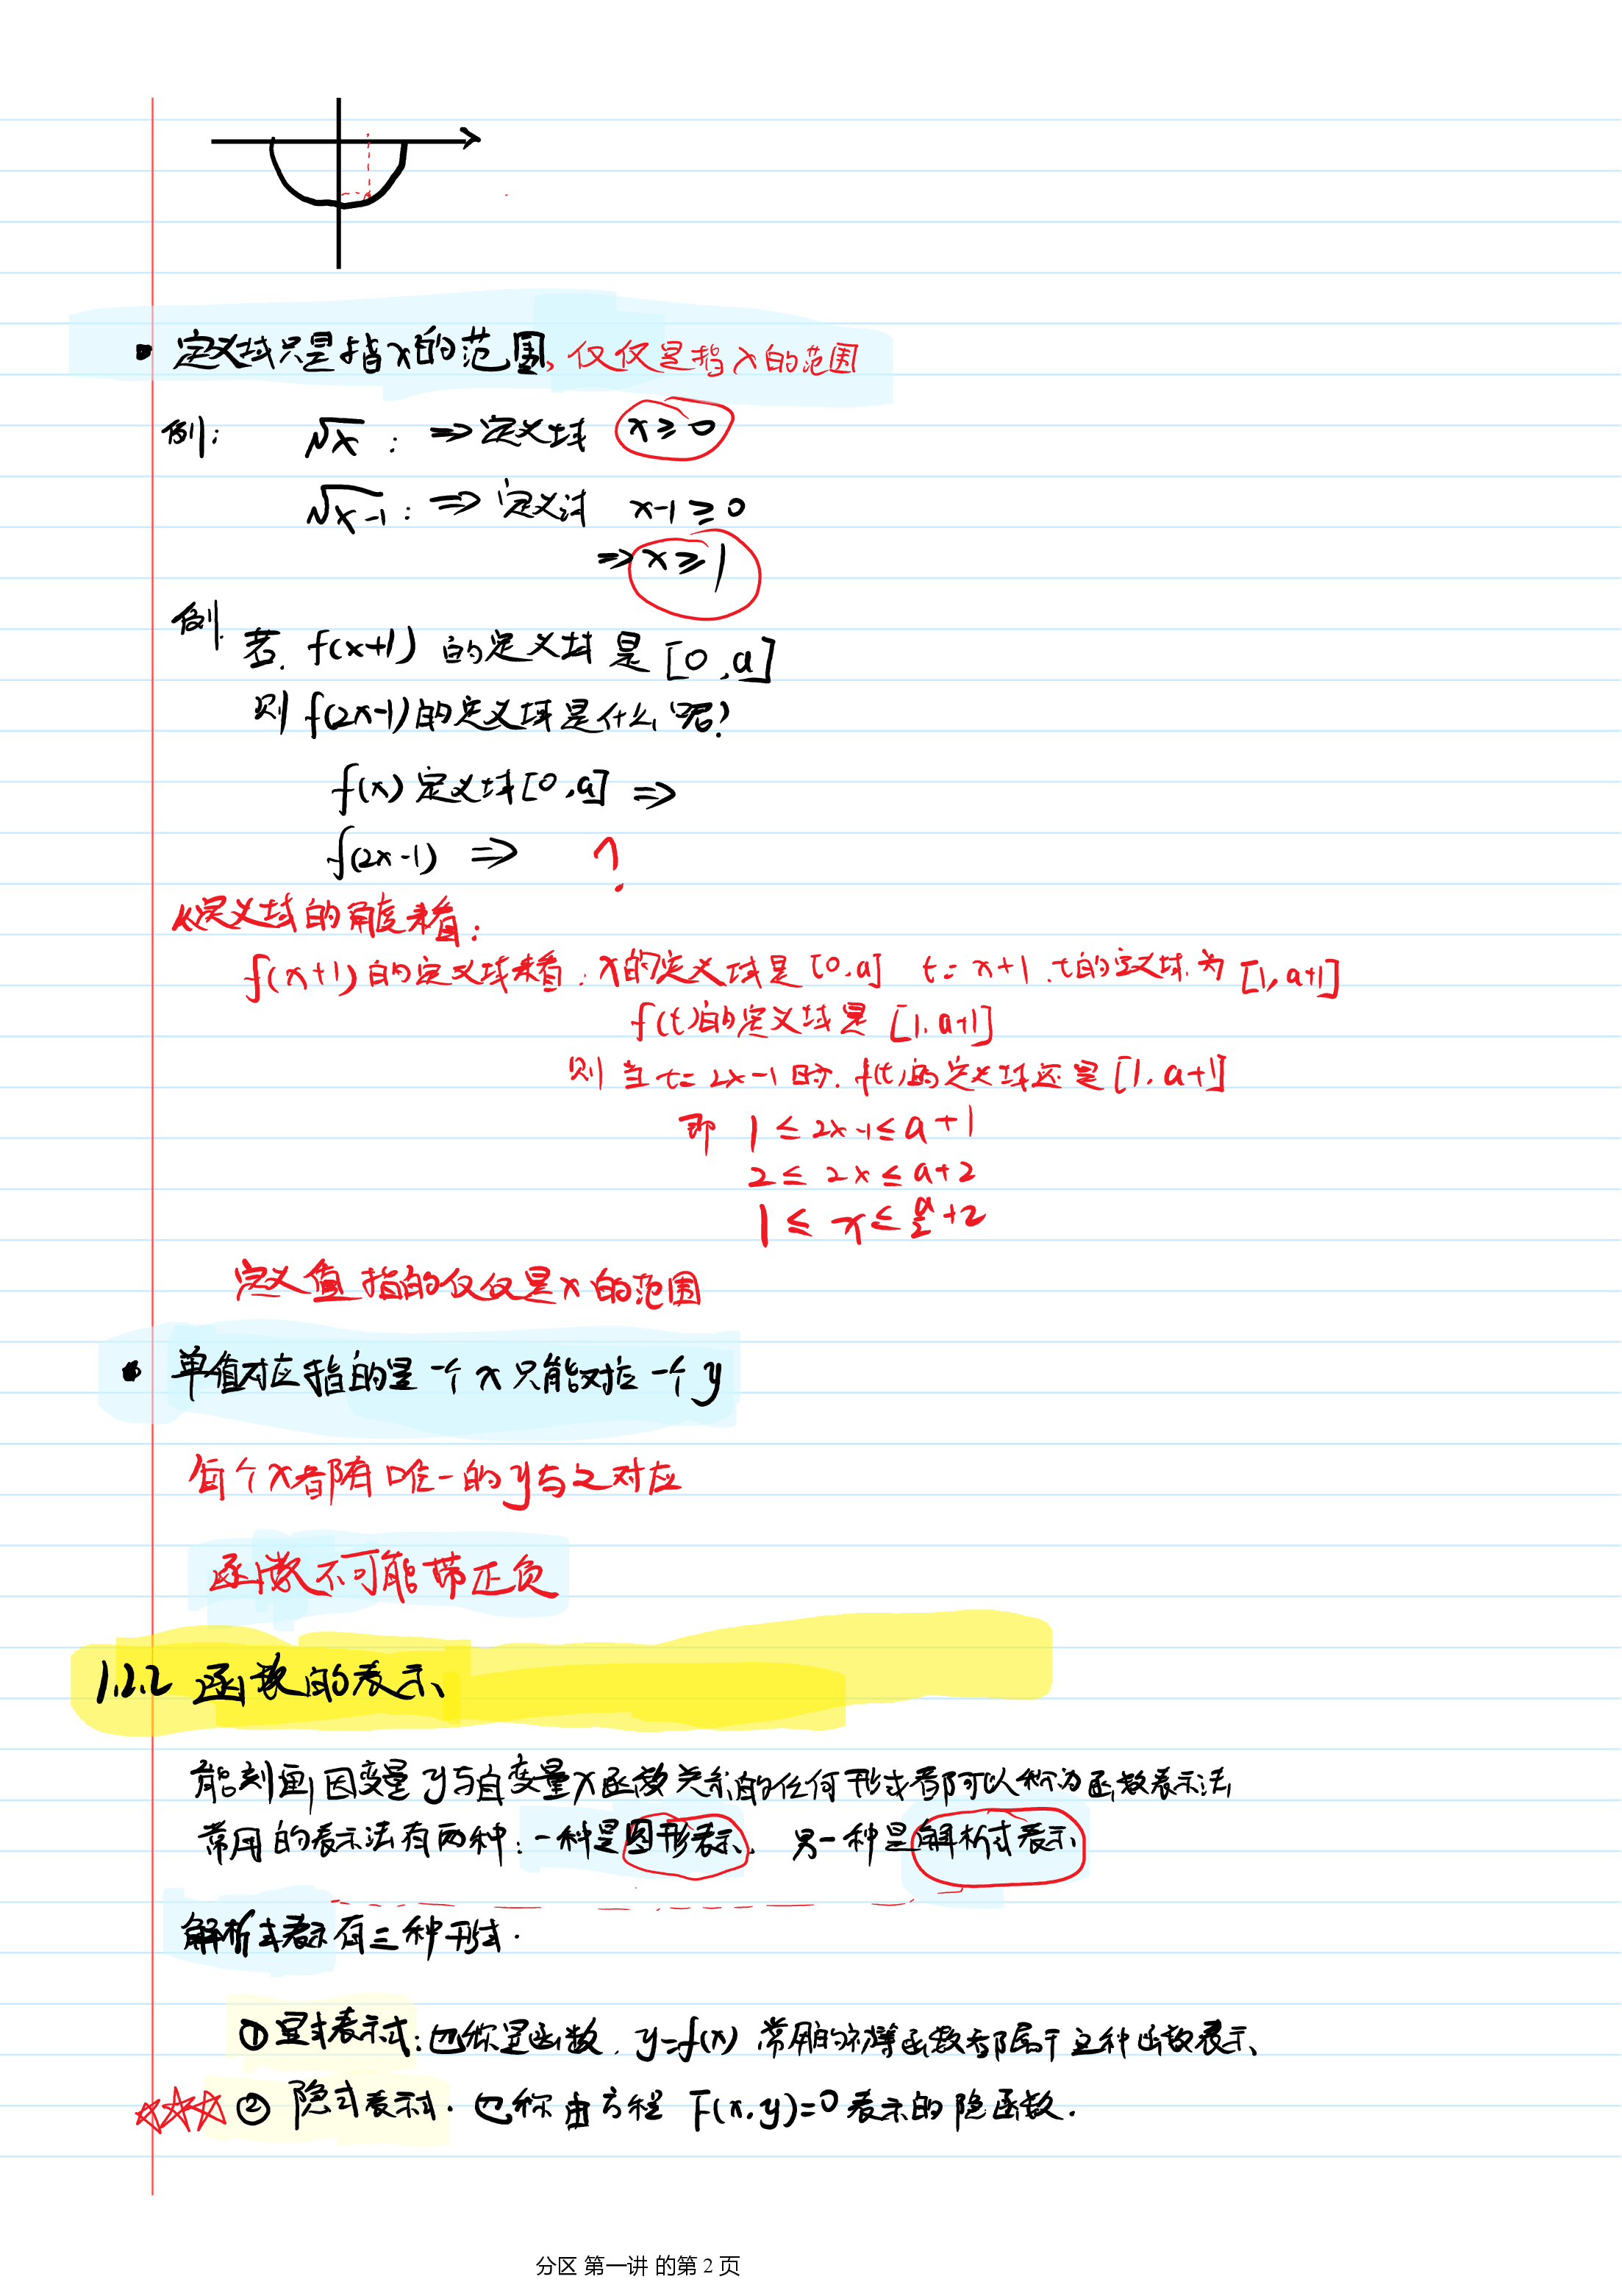 定义域只是指x的范围、仅仅是指x的范围
例: √x : ⇒定义域 x≥0
√x-1 : ⇒ 定义域 x-1≥0
⇒x≥1
例. 若. f(x+1) 的定义域是[0,a]
则 f(2x-1)的定义域是什么呢?
f(x) 定义域[0,a] ⇒
f(2x-1) ⇒ ?
从定义域的角度来看:
f(x+1)的定义域来看:x的定义域是[0,a] t=x+1.t的定义域为[1,a+1]
f(t)的定义域是[1,a+1]
则当t=2x-1时.f(t)的定义域还是[1,a+1]
即 1≤2x-1≤a+1
2≤2x≤a+2
1≤x≤a/2+2
定义值指的仅仅是x的范围
单值对应指的是一个x只能对应一个y
每个x都有唯一的y与之对应
函数不可能带正负
1.2.2 函数的表示
能刻画因变量y与自变量x函数关系的任何形式都可以称为函数表示法
常用的表示法有两种:一种是图形表示. 另一种是解析式表示
解析式表示有三种形式.
①显式表示式:也称显函数. y=f(x) 常用的初等函数都属于这种函数表示
② 隐式表示式. 也称由方程 F(x,y)=0表示的隐函数.
分区 第一讲 的第 2 页